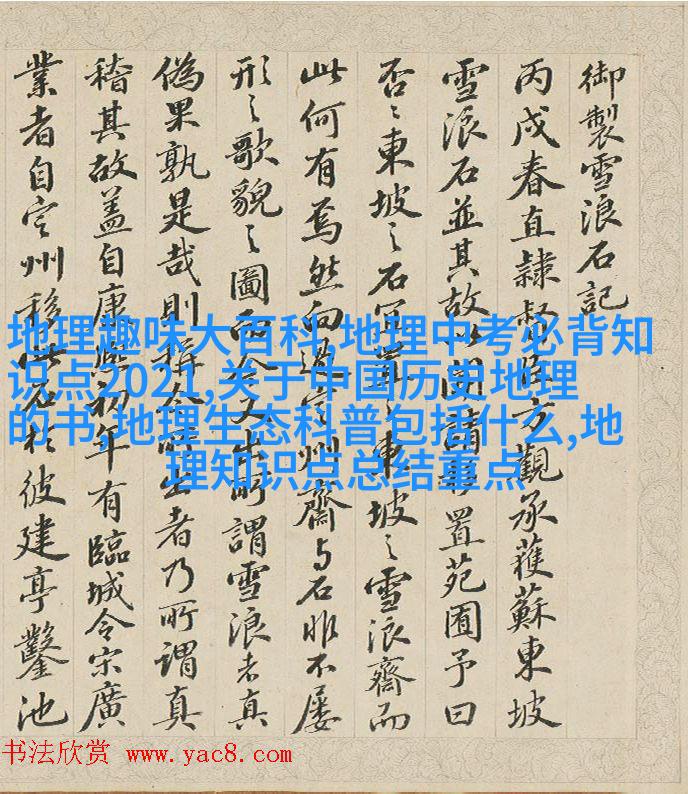 御製雪浪石記
丙戌春直隸方觀承獲蘇東坡
雪浪石並其故以聞請移置苑囿予曰
否〻東坡〻石宜置〻東坡〻雪浪齋而
此何有焉然向過定州齋与石非不屡
形〻歌貌〻圖而今又出所謂雪浪者真
偽果孰是哉則稱今所出者乃所謂真
稽其故盖自康熙初年有臨城令宋廣
業者自定州移此石於彼建亭鑿池
地理趣味大百科,地理中考必背知
识点2021,关于中国历史地理
的书,地理生态科普包括什么,地
理知识点总结重点
书法欣赏 www.yac8.com